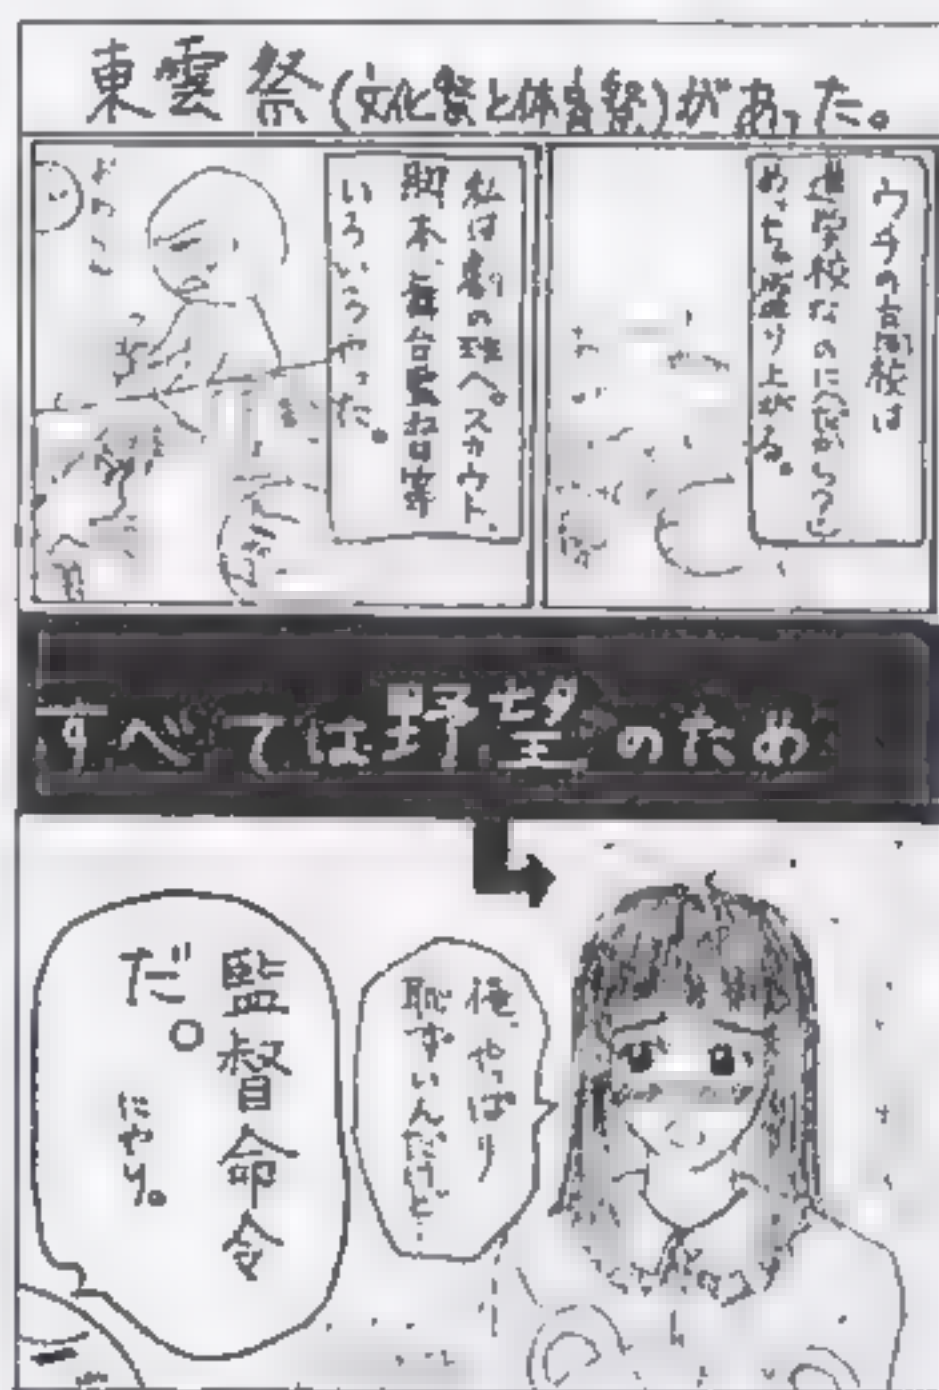 東雲祭(文化祭と体育祭)があった。
ウチの高校は
進学校なのに(だから?)
めっちゃ盛り上がる。
私は劇の理へ。スカウト、
脚本、舞台監督等
いろいろやった。
すべては野望のため
俺、やっぱり
恥ずいんだけど…
監督命令
だ。
にやり。